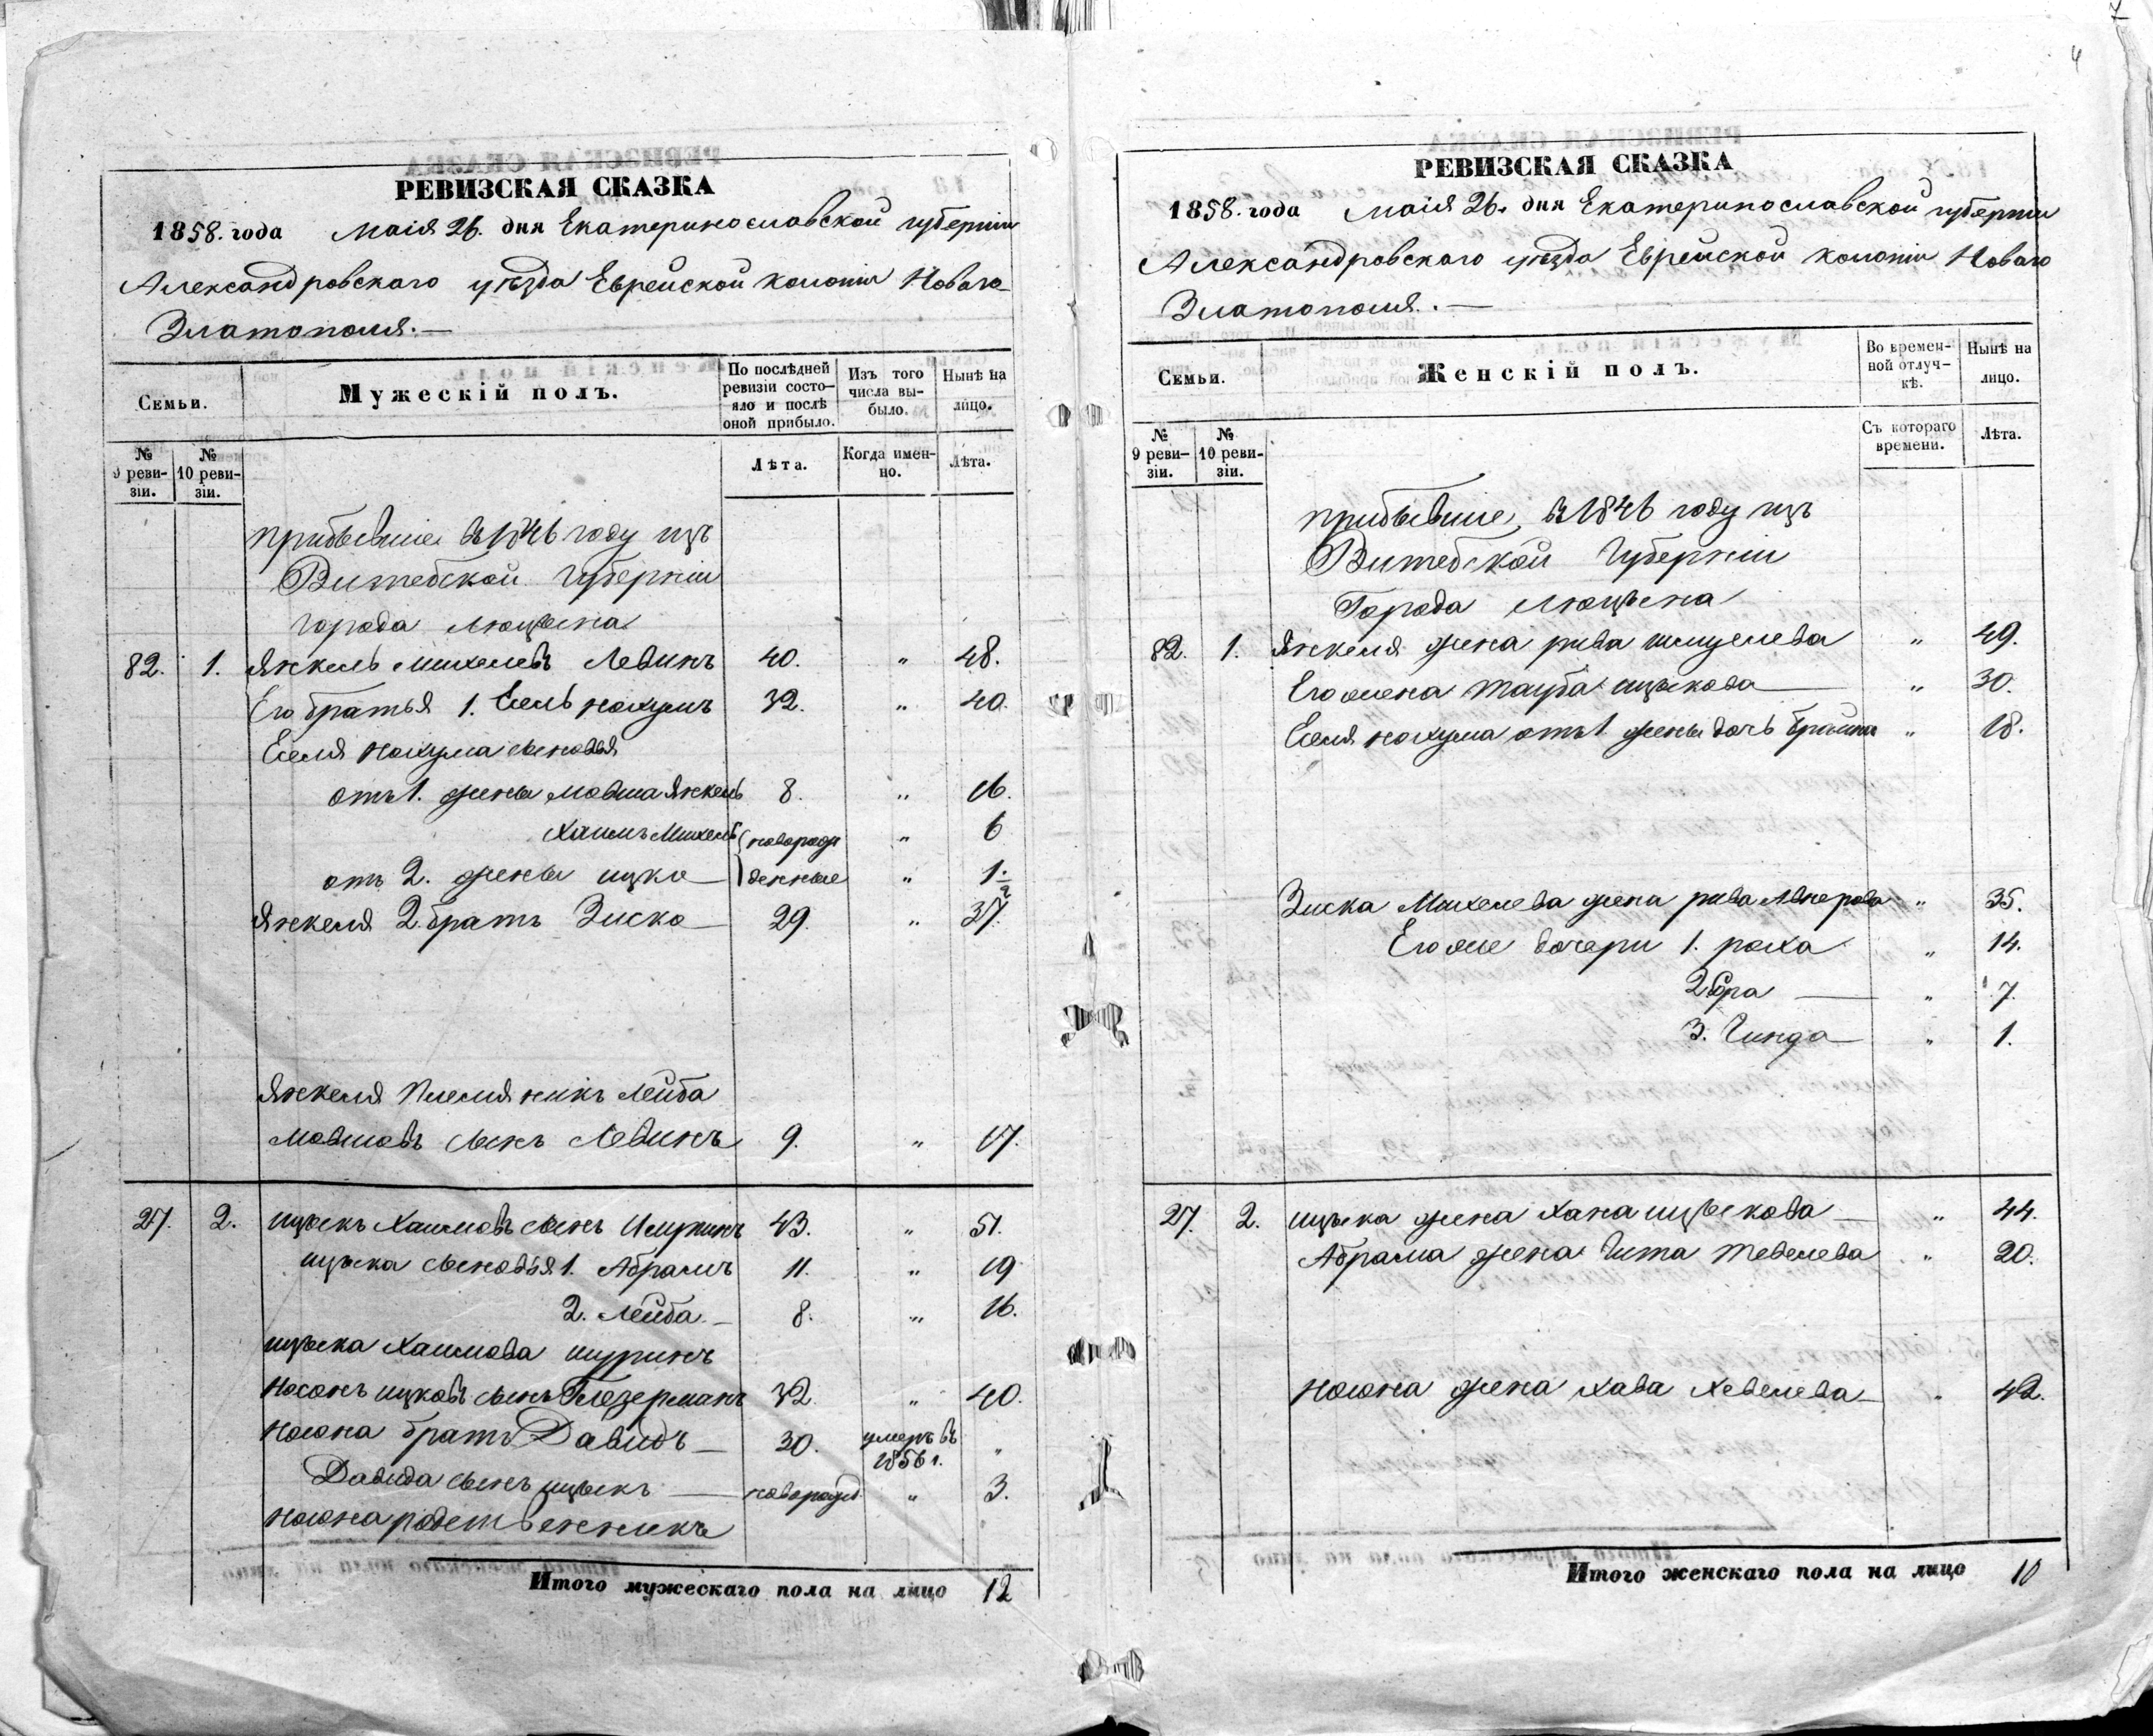 7
4
РЕВИЗСКАЯ СКАЗКА
1858. года Маія 26. дня Екатеринославской губерніи
Александровскаго уѣзда Еврейской колоніи Новаго
Златополя.—
Семьи.
Мужескій полъ.
По послѣдней ревизіи состо-яло и послѣ оной прибыло.
Изъ того числа вы-было.
Нынѣ на лицо.
№ 9 реви-зіи.
№ 10 реви-зіи.
Лѣта.
Когда имен-но.
Лѣта.
прибывшіе въ 1846 году изъ
Витебской Губерніи
города Люцына
82. 1. Янкель Михелевъ Левинъ 40. " 48.
Его братья 1. Есель нохумъ 32. " 40.
Еселя нохума сыновья
отъ 1. жены Мовша Янкель 8. " 16.
Хаимъ Михель новорож " 6
отъ 2. жены ицко денные " 1 1/2
Янкеля 2. братъ Зиско 29. " 37.
Янкеля Племянникъ Лейба
Мовшовъ сынъ Левинъ 9. " 17.
27. 2. ицыкъ Хаимовъ сынъ 43. " 51.
ицыка сыновья 1. Абрамъ 11. " 19
2. Лейба — 8. " 16.
ицыка Хаимова шуринъ
Носонъ ицковъ сынъ Глезерманъ 32. " 40.
Носона братъ Давидъ — 30. умеръ въ 1856 г. "
Давида сынъ ицыкъ — новорожд. " 3.
Носона родственникъ
Итого мужескаго пола на лицо 12
РЕВИЗСКАЯ СКАЗКА
1858. года Маія 26. дня Екатеринославской губерніи
Александровскаго уѣзда Еврейской колоніи Новаго
Златополя.—
Семьи.
Женскій полъ.
Во времен-ной отлуч-кѣ.
Нынѣ на лицо.
№ 9 реви-зіи.
№ 10 реви-зіи.
Съ котораго времени.
Лѣта.
прибывшіе, въ 1846 году изъ
Витебской Губерніи
Города Люцына
82. 1. Янкеля жена рива шмуелева " 49.
Его жена тауба ицыкова — " 30.
Еселя нохума отъ 1. жены дочь Брайна " 18.
Зиска Михелева жена рива " 35.
Его же дочери 1. роха " 14.
2. — " 7.
3. Гинда — " 1.
27. 2. ицыка жена хана ицыкова — " 44.
Абрама жена Гита тевелева " 20.
Носона жена хава хевелева — " 42.
Итого женскаго пола на лицо 10